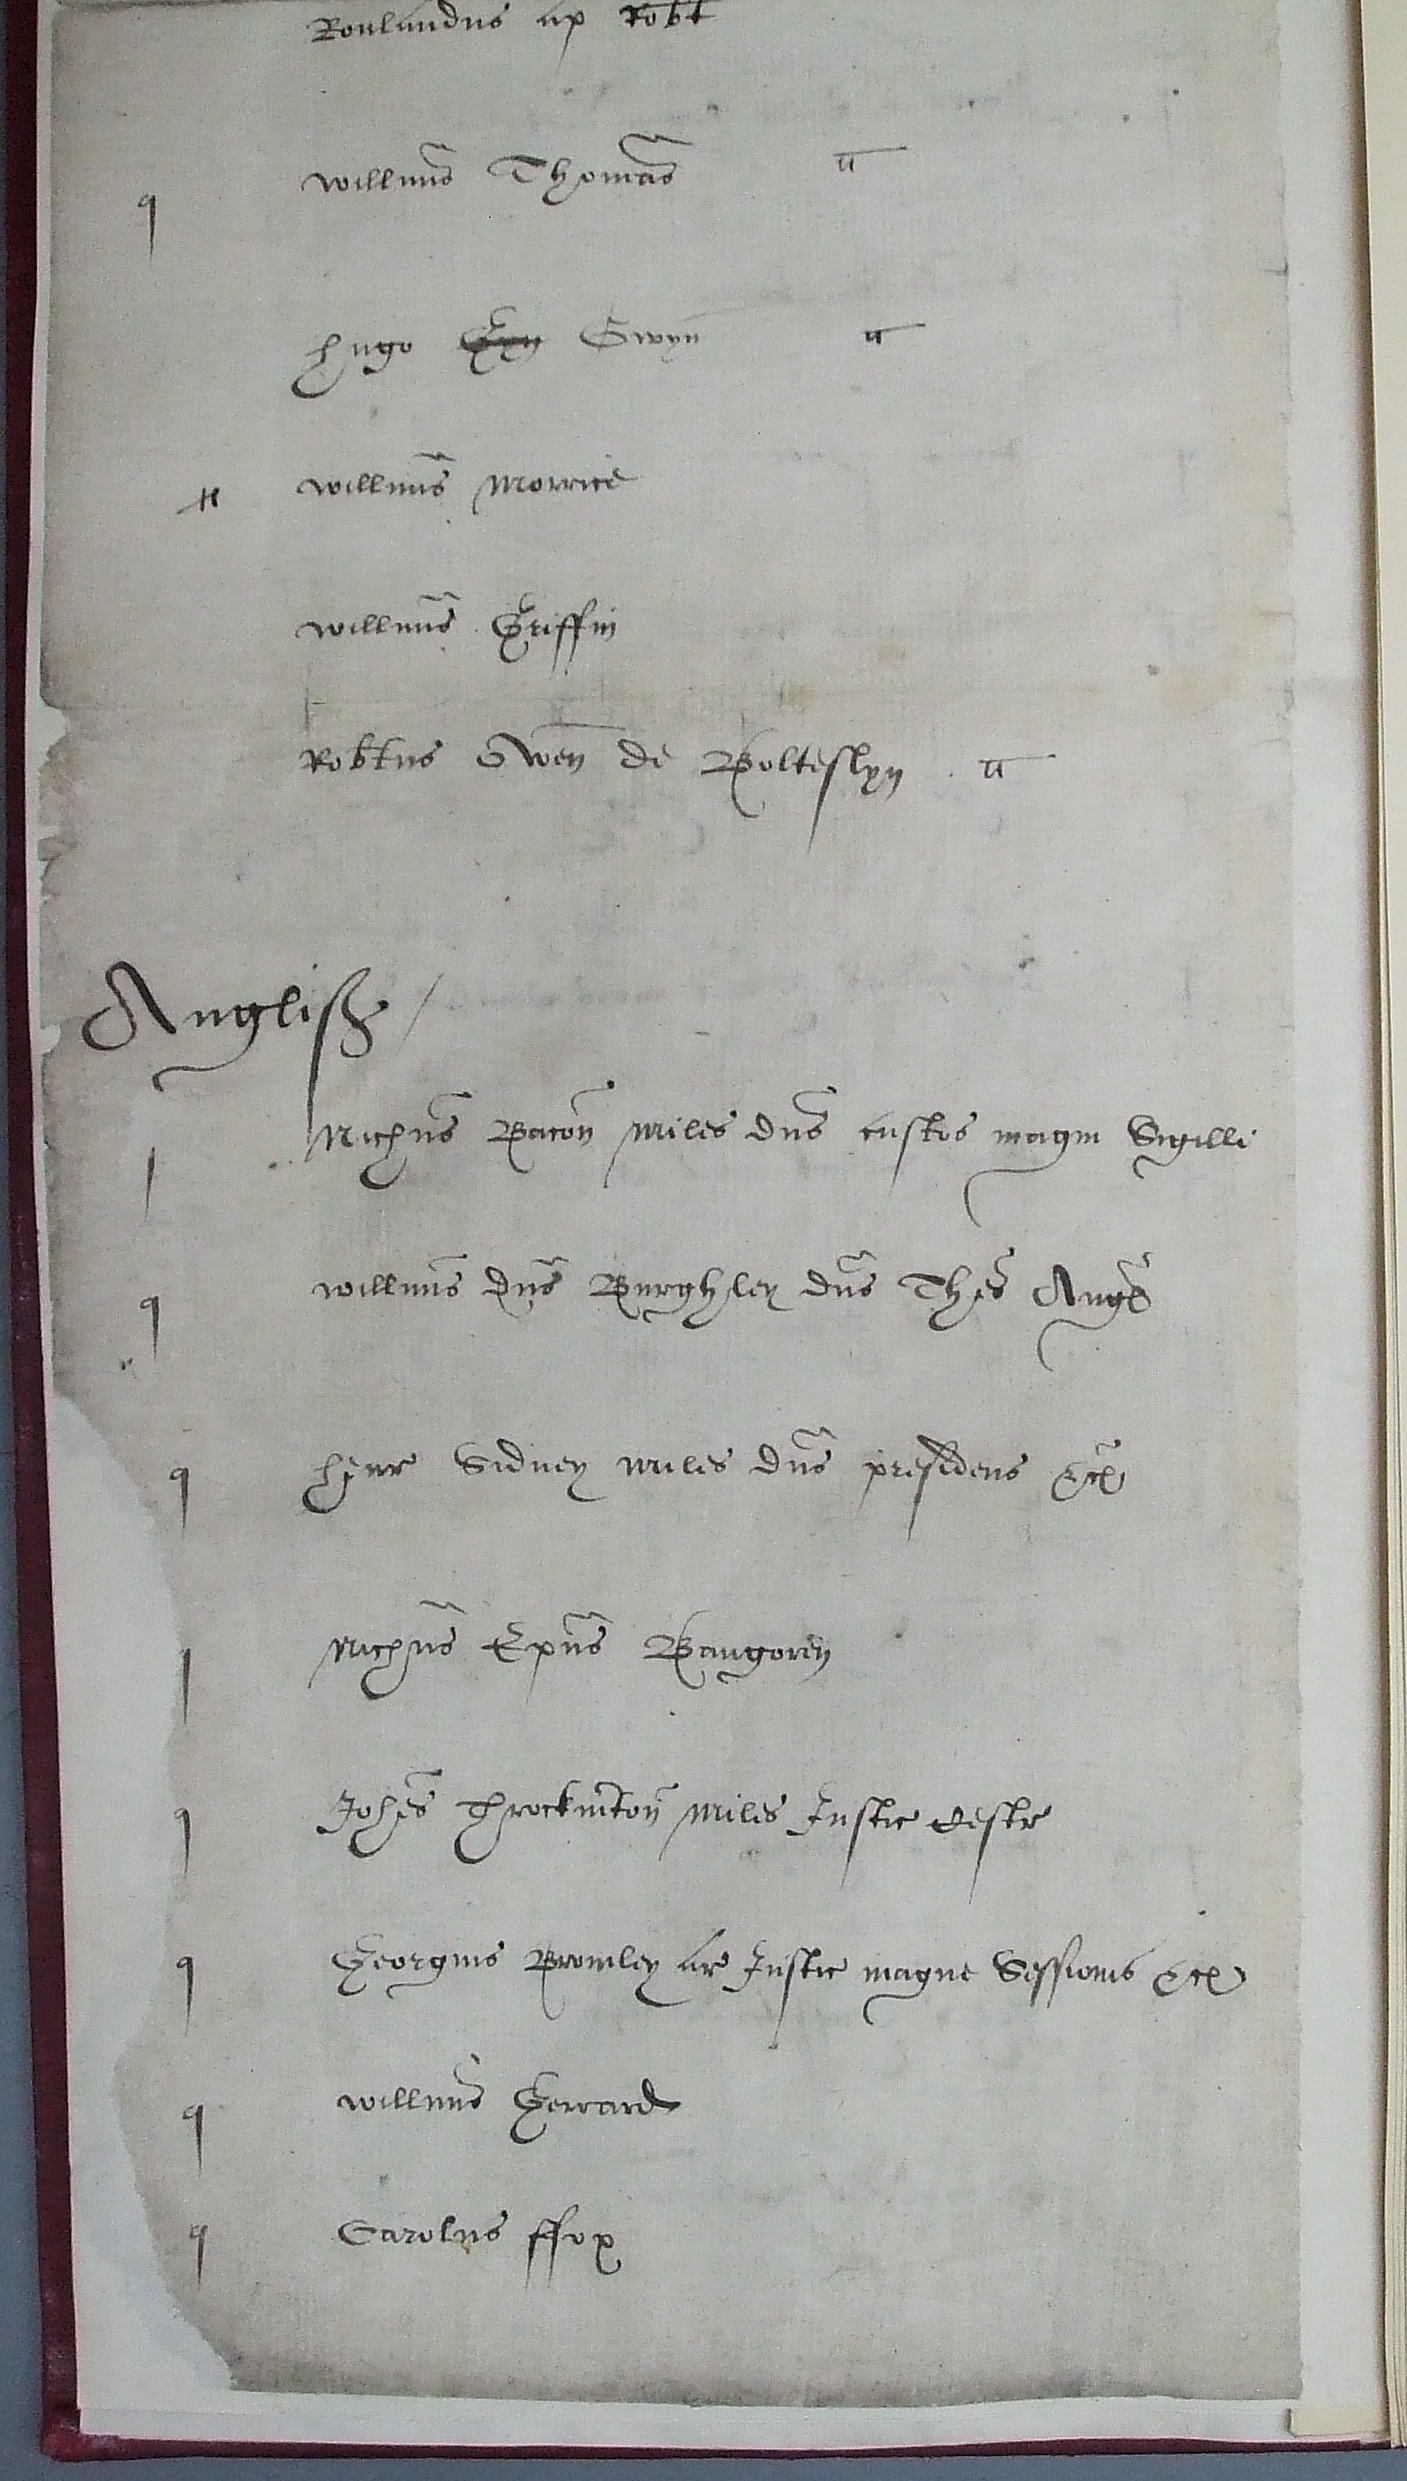 Roulandus ap Robt
q Willmus Thomas
Hugo Gwyn
Willmus Morrice
Willmus Griffin
Robtus Owen de Bolteslyn
Anglis /
Nichus Bacon Miles dns custos magni Sigilli
q Willmus dns Burghley dns Thes Angl
q Henr Sidney miles dns presidens &c
Nichus Epus Bangoren
q Johes Throckmton Miles Justic Cestr
q Georgius Bromley Ar Justic magne Sessionis &c
q Willmus Gerrard
q Carolus ffox